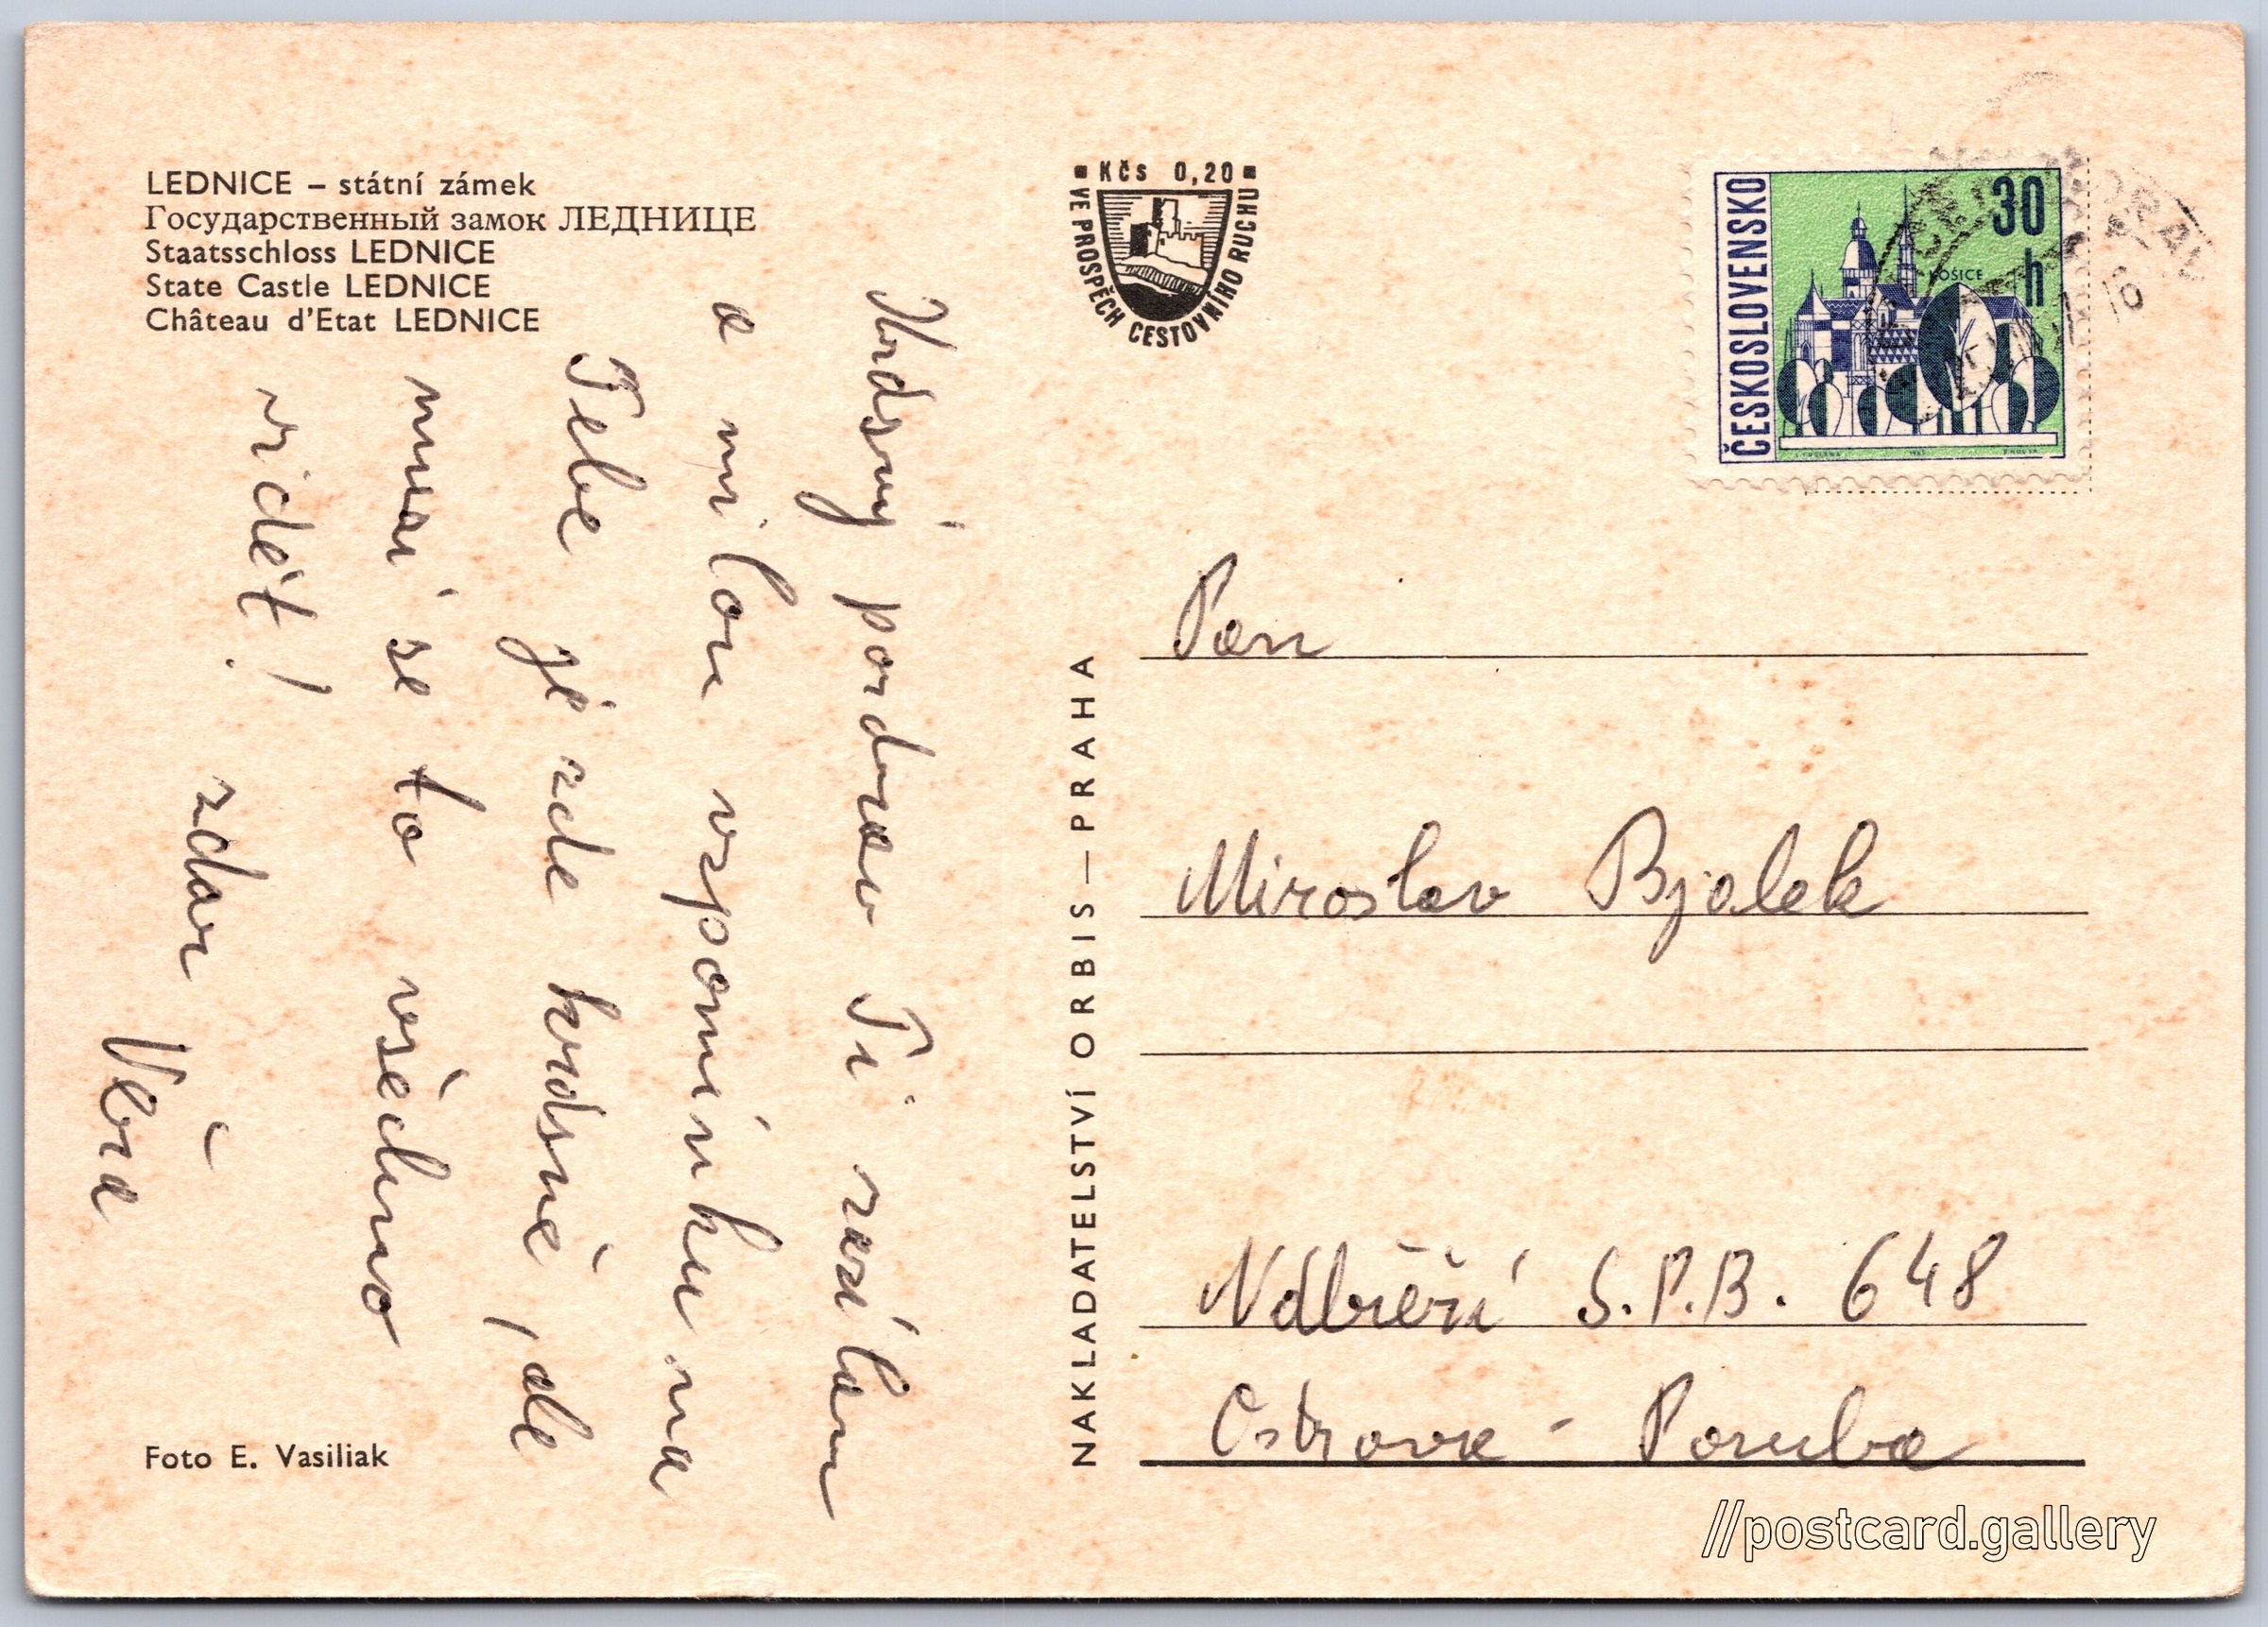 LEDNICE – státní zámek
Государственный замок ЛЕДНИЦЕ
Staatsschloss LEDNICE
State Castle LEDNICE
Château d'Etat LEDNICE
Krásný pozdrav Ti zasílám
a milou vzpomínku na
Tebe je zde krásně, ale
musí se to všechno
vidět!
zdar
Věra
Foto E. Vasiliak
Kčs 0,20
VE PROSPĚCH CESTOVNÍHO RUCHU
NAKLADATELSTVÍ ORBIS — PRAHA
ČESKOSLOVENSKO
30
h
KOŠICE
Pan
Miroslav Bjalek
Nábřeží S.P.B. 648
Ostrava - Poruba
//postcard.gallery